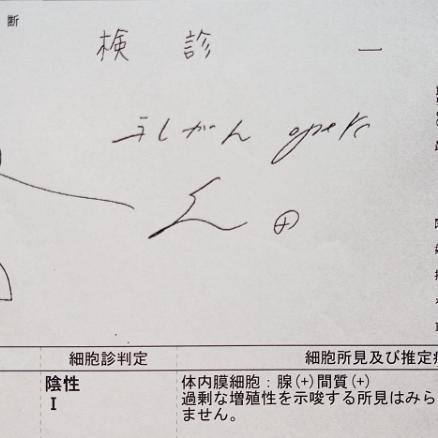 断
検診
乳がん ope後
細胞診判定
細胞所見及び推定
陰性
Ⅰ
体内膜細胞:腺(+)間質(+)
過剰な増殖性を示唆する所見はみら
ません。